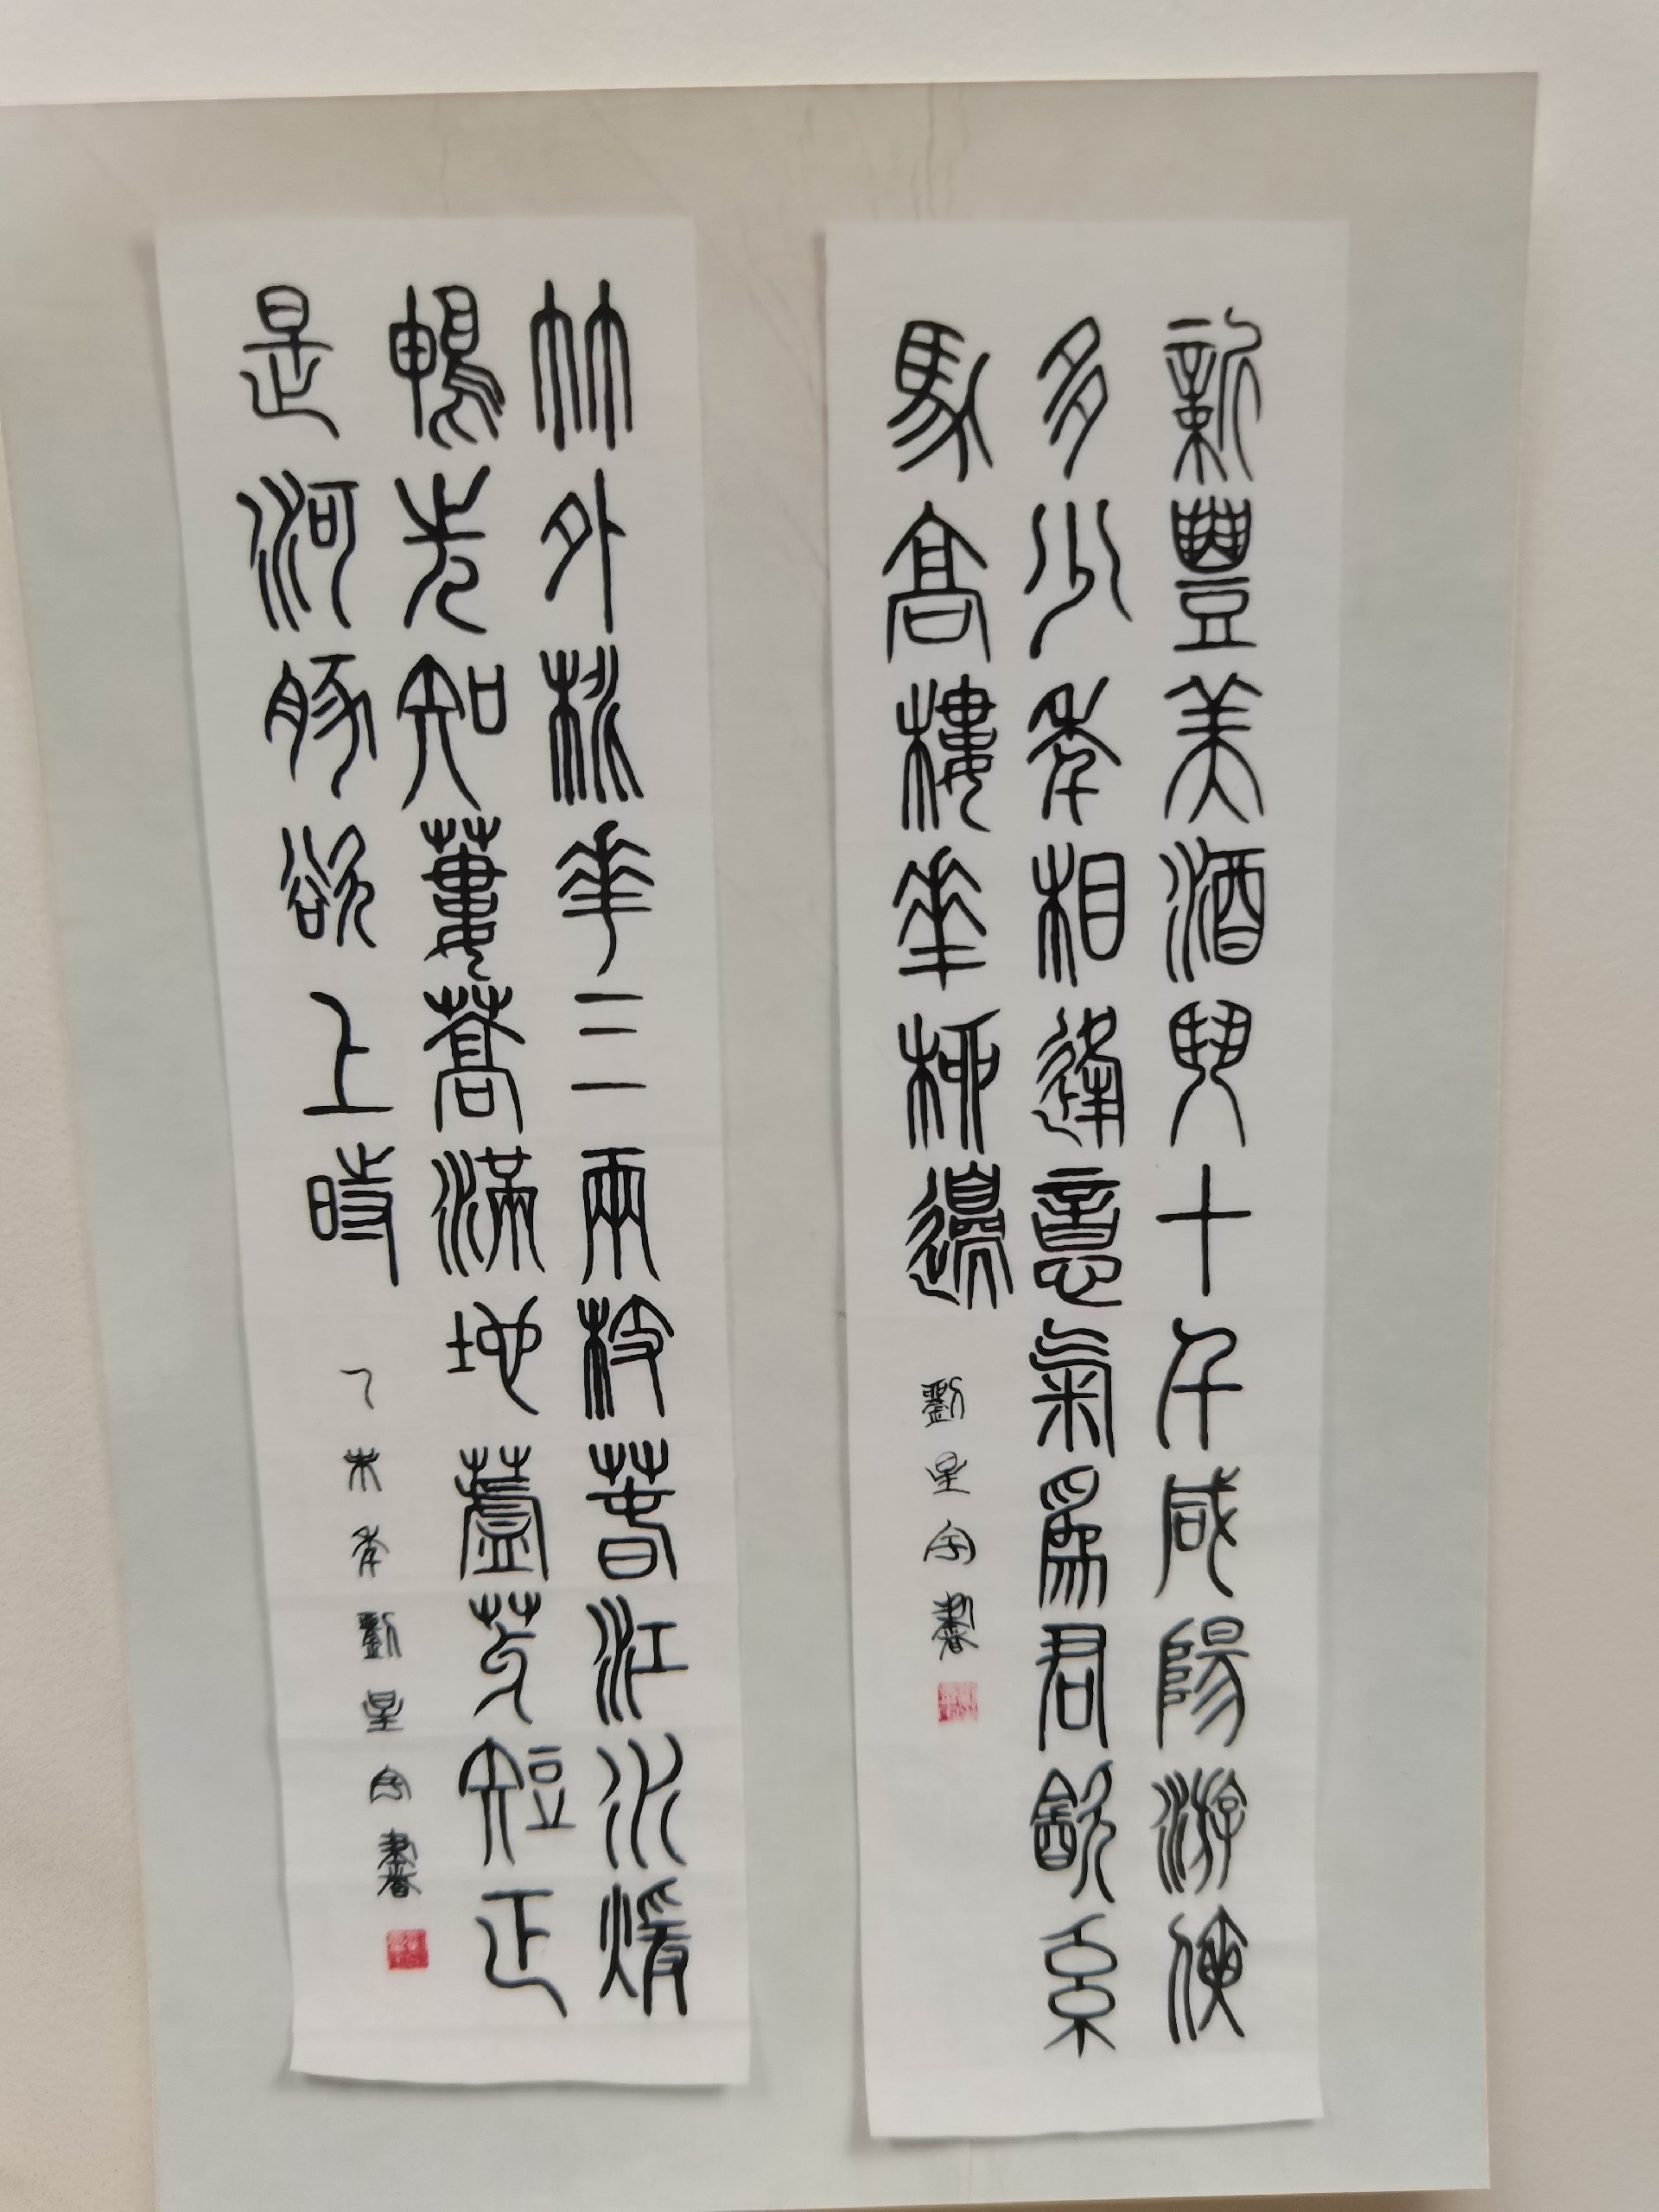 新豐美酒斗十千咸陽游俠
多少年相逢意氣爲君飲系
馬高樓垂柳邊
劉星宇書
竹外桃花三兩枝春江水暖
鴨先知蔞蒿滿地蘆芽短正
是河豚欲上時
乙未年劉星宇書